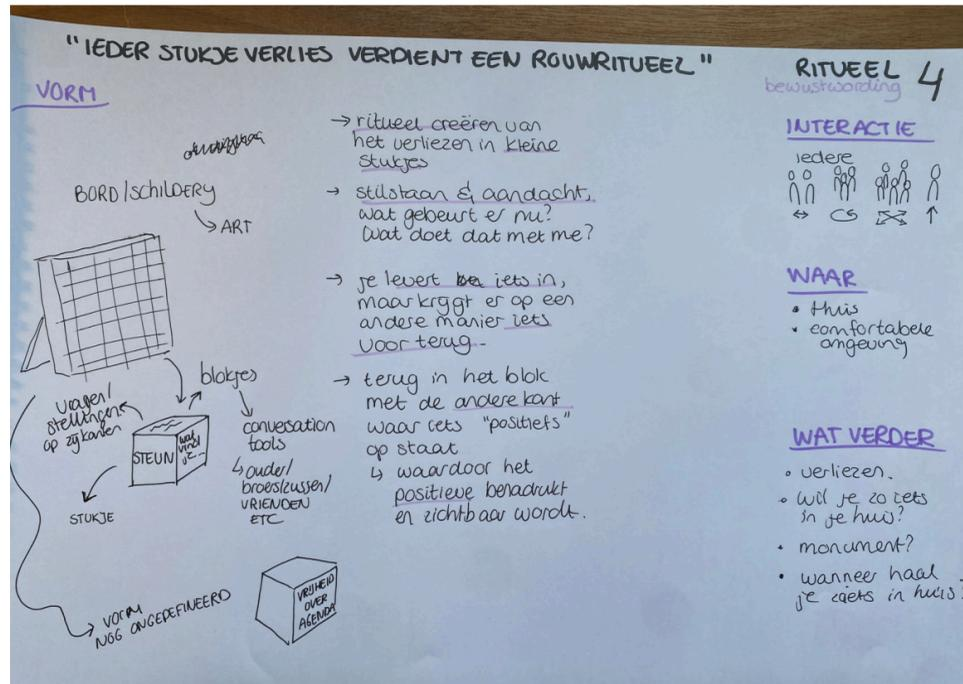 "IEDER STUKJE VERLIES VERDIENT EEN ROUWRITUEEL"
RITUEEL 4
bewustwording
VORM
BORD/SCHILDERY
↳ ART
blokjes
vragen/
stellingen
op zijkanten
STEUN
wat
vind
je...
STUKJE
conversation
tools
↳ ouder/
broers/zussen/
VRIENDEN
ETC
VORM
NOG ONGEDEFINEERD
VRIJHEID
OVER
AGENDA
→ ritueel creëren van
het verliezen in kleine
stukjes
→ stilstaan & aandacht,
wat gebeurt er nu?
Wat doet dat met me?
→ je levert iets in,
maar krygt er op een
andere manier iets
voor terug.
→ terug in het blok
met de andere kant
waar iets "positiefs"
op staat
↳ waardoor het
positieve benadrukt
en zichtbaar wordt.
INTERACTIE
iedere
WAAR
• thuis
• comfortabele
omgeving
WAT VERDER
• verliezen.
• wil je zo iets
in je huis?
• monument?
• wanneer haal
je zoiets in huis?